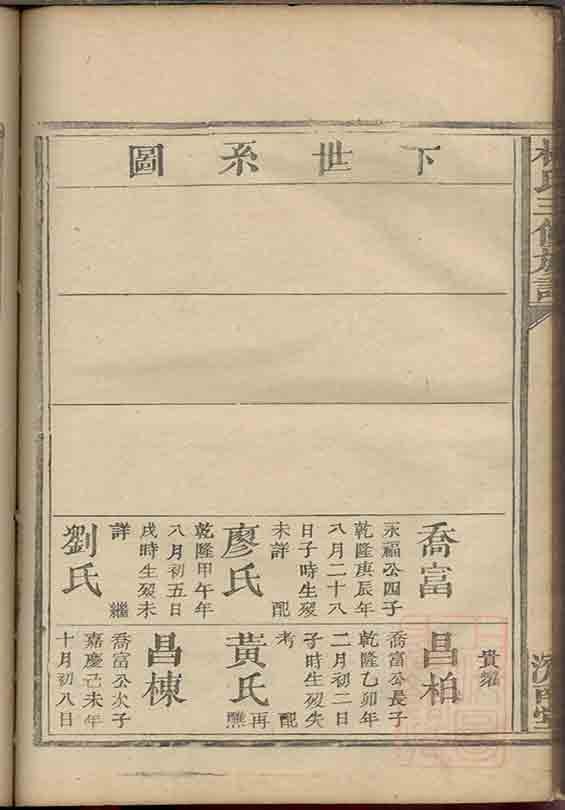 氏三修族譜
下世系圖
喬富
永福公四子
乾隆庚辰年
八月二十八
日子時生歿
未詳 配
廖氏
乾隆甲午年
八月初五日
戌時生歿未
詳 繼
劉氏
昌柏
喬富公長子
乾隆乙卯年
二月初二日
子時生歿失
考 配
黃氏
再
醮
昌棟
喬富公次子
嘉慶己未年
十月初八日